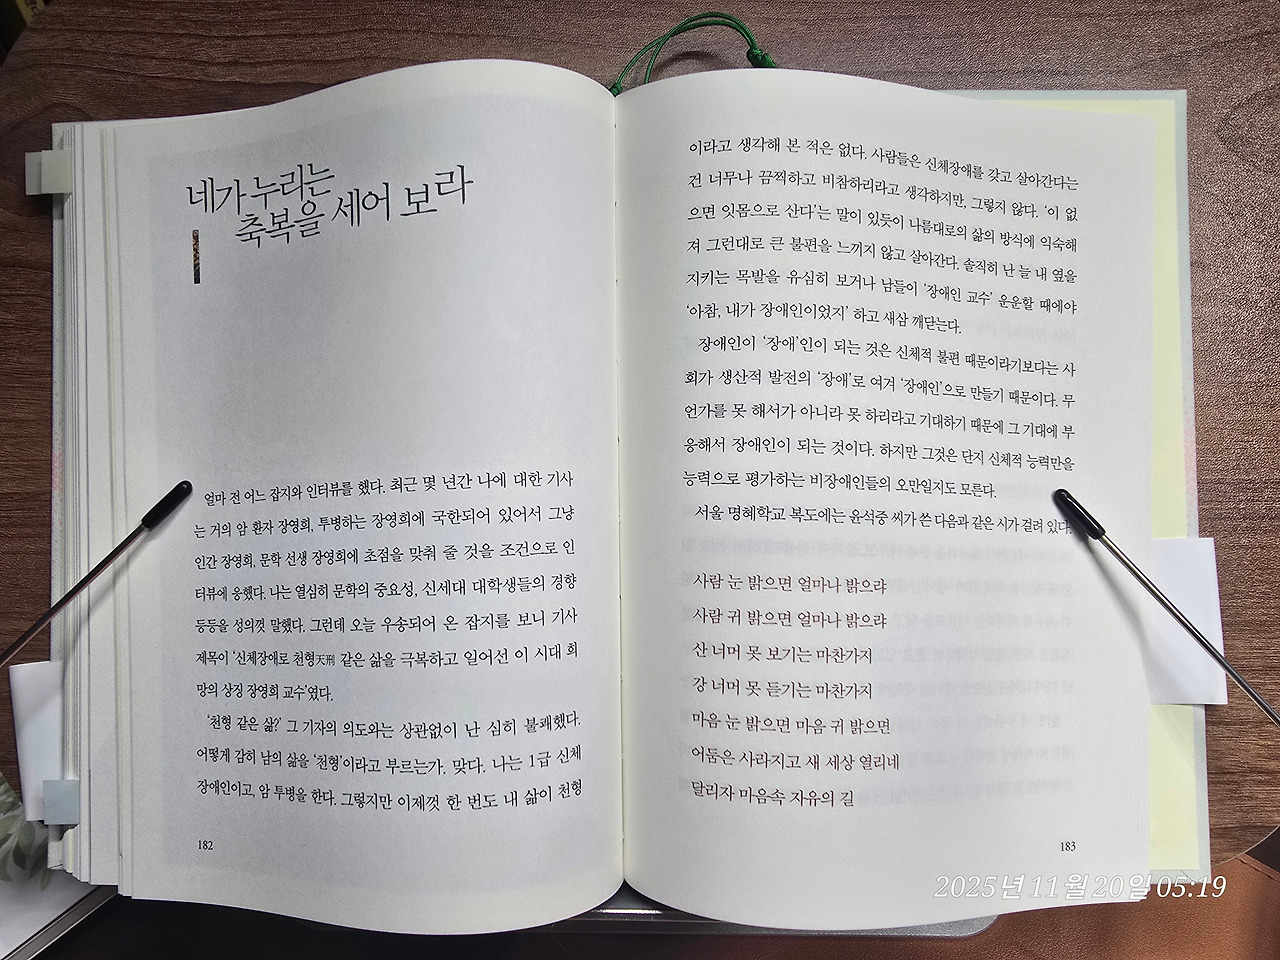 네가 누리는
축복을 세어 보라
얼마 전 어느 잡지와 인터뷰를 했다. 최근 몇 년간 나에 대한 기사
는 거의 암 환자 장영희, 투병하는 장영희에 국한되어 있어서 그냥
인간 장영희, 문학 선생 장영희에 초점을 맞춰 줄 것을 조건으로 인
터뷰에 응했다. 나는 열심히 문학의 중요성, 신세대 대학생들의 경향
등등을 성의껏 말했다. 그런데 오늘 우송되어 온 잡지를 보니 기사
제목이 ‘신체장애로 천형天刑 같은 삶을 극복하고 일어선 이 시대 희
망의 상징 장영희 교수’였다.
‘천형 같은 삶?’ 그 기자의 의도와는 상관없이 난 심히 불쾌했다.
어떻게 감히 남의 삶을 ‘천형’이라고 부르는가. 맞다. 나는 1급 신체
장애인이고, 암 투병을 한다. 그렇지만 이제껏 한 번도 내 삶이 천형
182
이라고 생각해 본 적은 없다. 사람들은 신체장애를 갖고 살아간다는
건 너무나 끔찍하고 비참하리라고 생각하지만, 그렇지 않다. ‘이 없
으면 잇몸으로 산다’는 말이 있듯이 나름대로의 삶의 방식에 익숙해
져 그런대로 큰 불편을 느끼지 않고 살아간다. 솔직히 난 늘 내 옆을
지키는 목발을 유심히 보거나 남들이 ‘장애인 교수’ 운운할 때에야
‘아참, 내가 장애인이었지’ 하고 새삼 깨닫는다.
장애인이 ‘장애’인이 되는 것은 신체적 불편 때문이라기보다는 사
회가 생산적 발전의 ‘장애’로 여겨 ‘장애인’으로 만들기 때문이다. 무
언가를 못 해서가 아니라 못 하리라고 기대하기 때문에 그 기대에 부
응해서 장애인이 되는 것이다. 하지만 그것은 단지 신체적 능력만을
능력으로 평가하는 비장애인들의 오만일지도 모른다.
서울 명혜학교 복도에는 윤석중 씨가 쓴 다음과 같은 시가 걸려 있다.
사람 눈 밝으면 얼마나 밝으랴
사람 귀 밝으면 얼마나 밝으랴
산 너머 못 보기는 마찬가지
강 너머 못 듣기는 마찬가지
마음 눈 밝으면 마음 귀 밝으면
어둠은 사라지고 새 세상 열리네
달리자 마음속 자유의 길
183
2025년 11월 20일 05:19